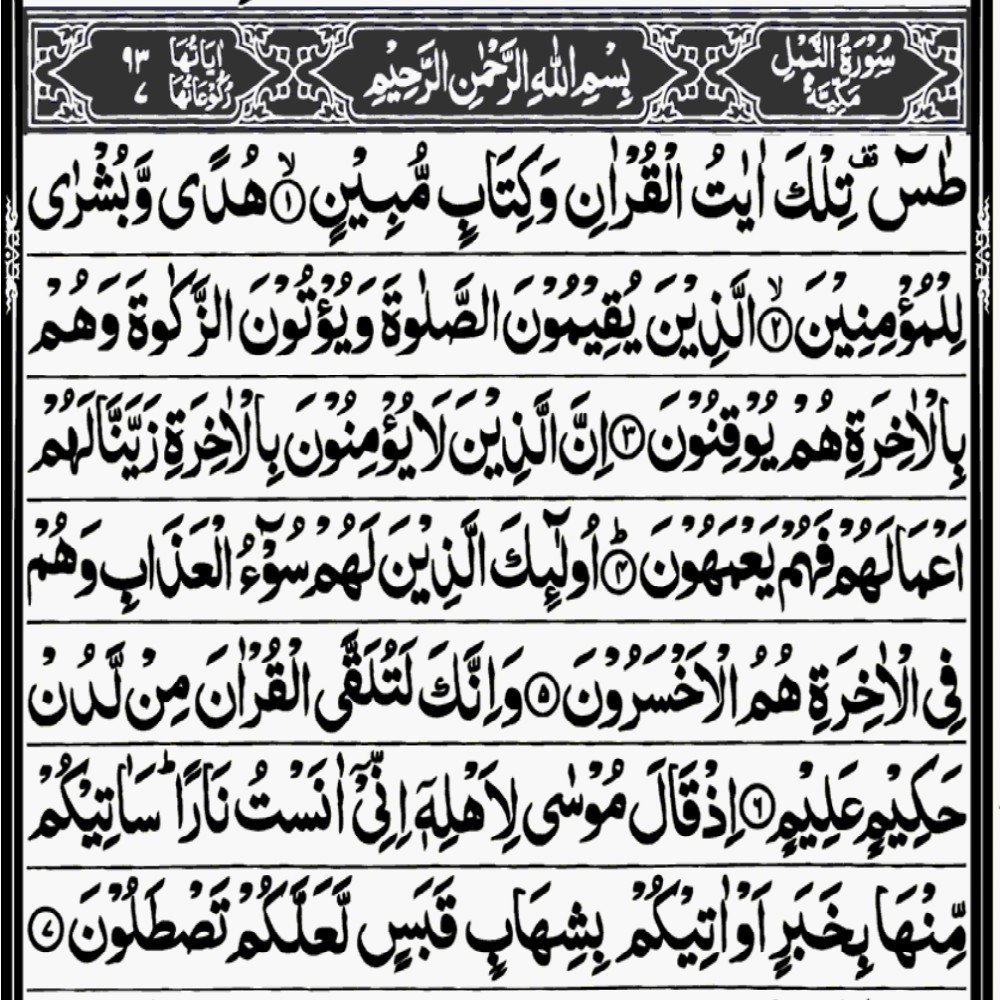 سُوْرَةُ النَّمْلِ مَكِّيَّةٌ بِسْمِ اللّٰهِ الرَّحْمٰنِ الرَّحِيْمِ اٰيَاتُهَا ٩٣ رُكُوْعَاتُهَا ٧
طٰسٓ ۚقف تِلْكَ اٰيٰتُ الْقُرْاٰنِ وَكِتَابٍ مُّبِيْنٍ ۙ﴿۱﴾ هُدًى وَّبُشْرٰى
لِلْمُؤْمِنِيْنَ ۙ﴿۲﴾ الَّذِيْنَ يُقِيْمُوْنَ الصَّلٰوةَ وَيُؤْتُوْنَ الزَّكٰوةَ وَهُمْ
بِالْاٰخِرَةِ هُمْ يُوْقِنُوْنَ ﴿۳﴾ اِنَّ الَّذِيْنَ لَا يُؤْمِنُوْنَ بِالْاٰخِرَةِ زَيَّنَّا لَهُمْ
اَعْمَالَهُمْ فَهُمْ يَعْمَهُوْنَ ؕ﴿۴﴾ اُولٰٓئِكَ الَّذِيْنَ لَهُمْ سُوْٓءُ الْعَذَابِ وَهُمْ
فِى الْاٰخِرَةِ هُمُ الْاَخْسَرُوْنَ ﴿۵﴾ وَاِنَّكَ لَتُلَقَّى الْقُرْاٰنَ مِنْ لَّدُنْ
حَكِيْمٍ عَلِيْمٍ ﴿۶﴾ اِذْ قَالَ مُوْسٰى لِاَهْلِهٖٓ اِنِّىْٓ اٰنَسْتُ نَارًا ؕ سَاٰتِيْكُمْ
مِّنْهَا بِخَبَرٍ اَوْ اٰتِيْكُمْ بِشِهَابٍ قَبَسٍ لَّعَلَّكُمْ تَصْطَلُوْنَ ﴿۷﴾